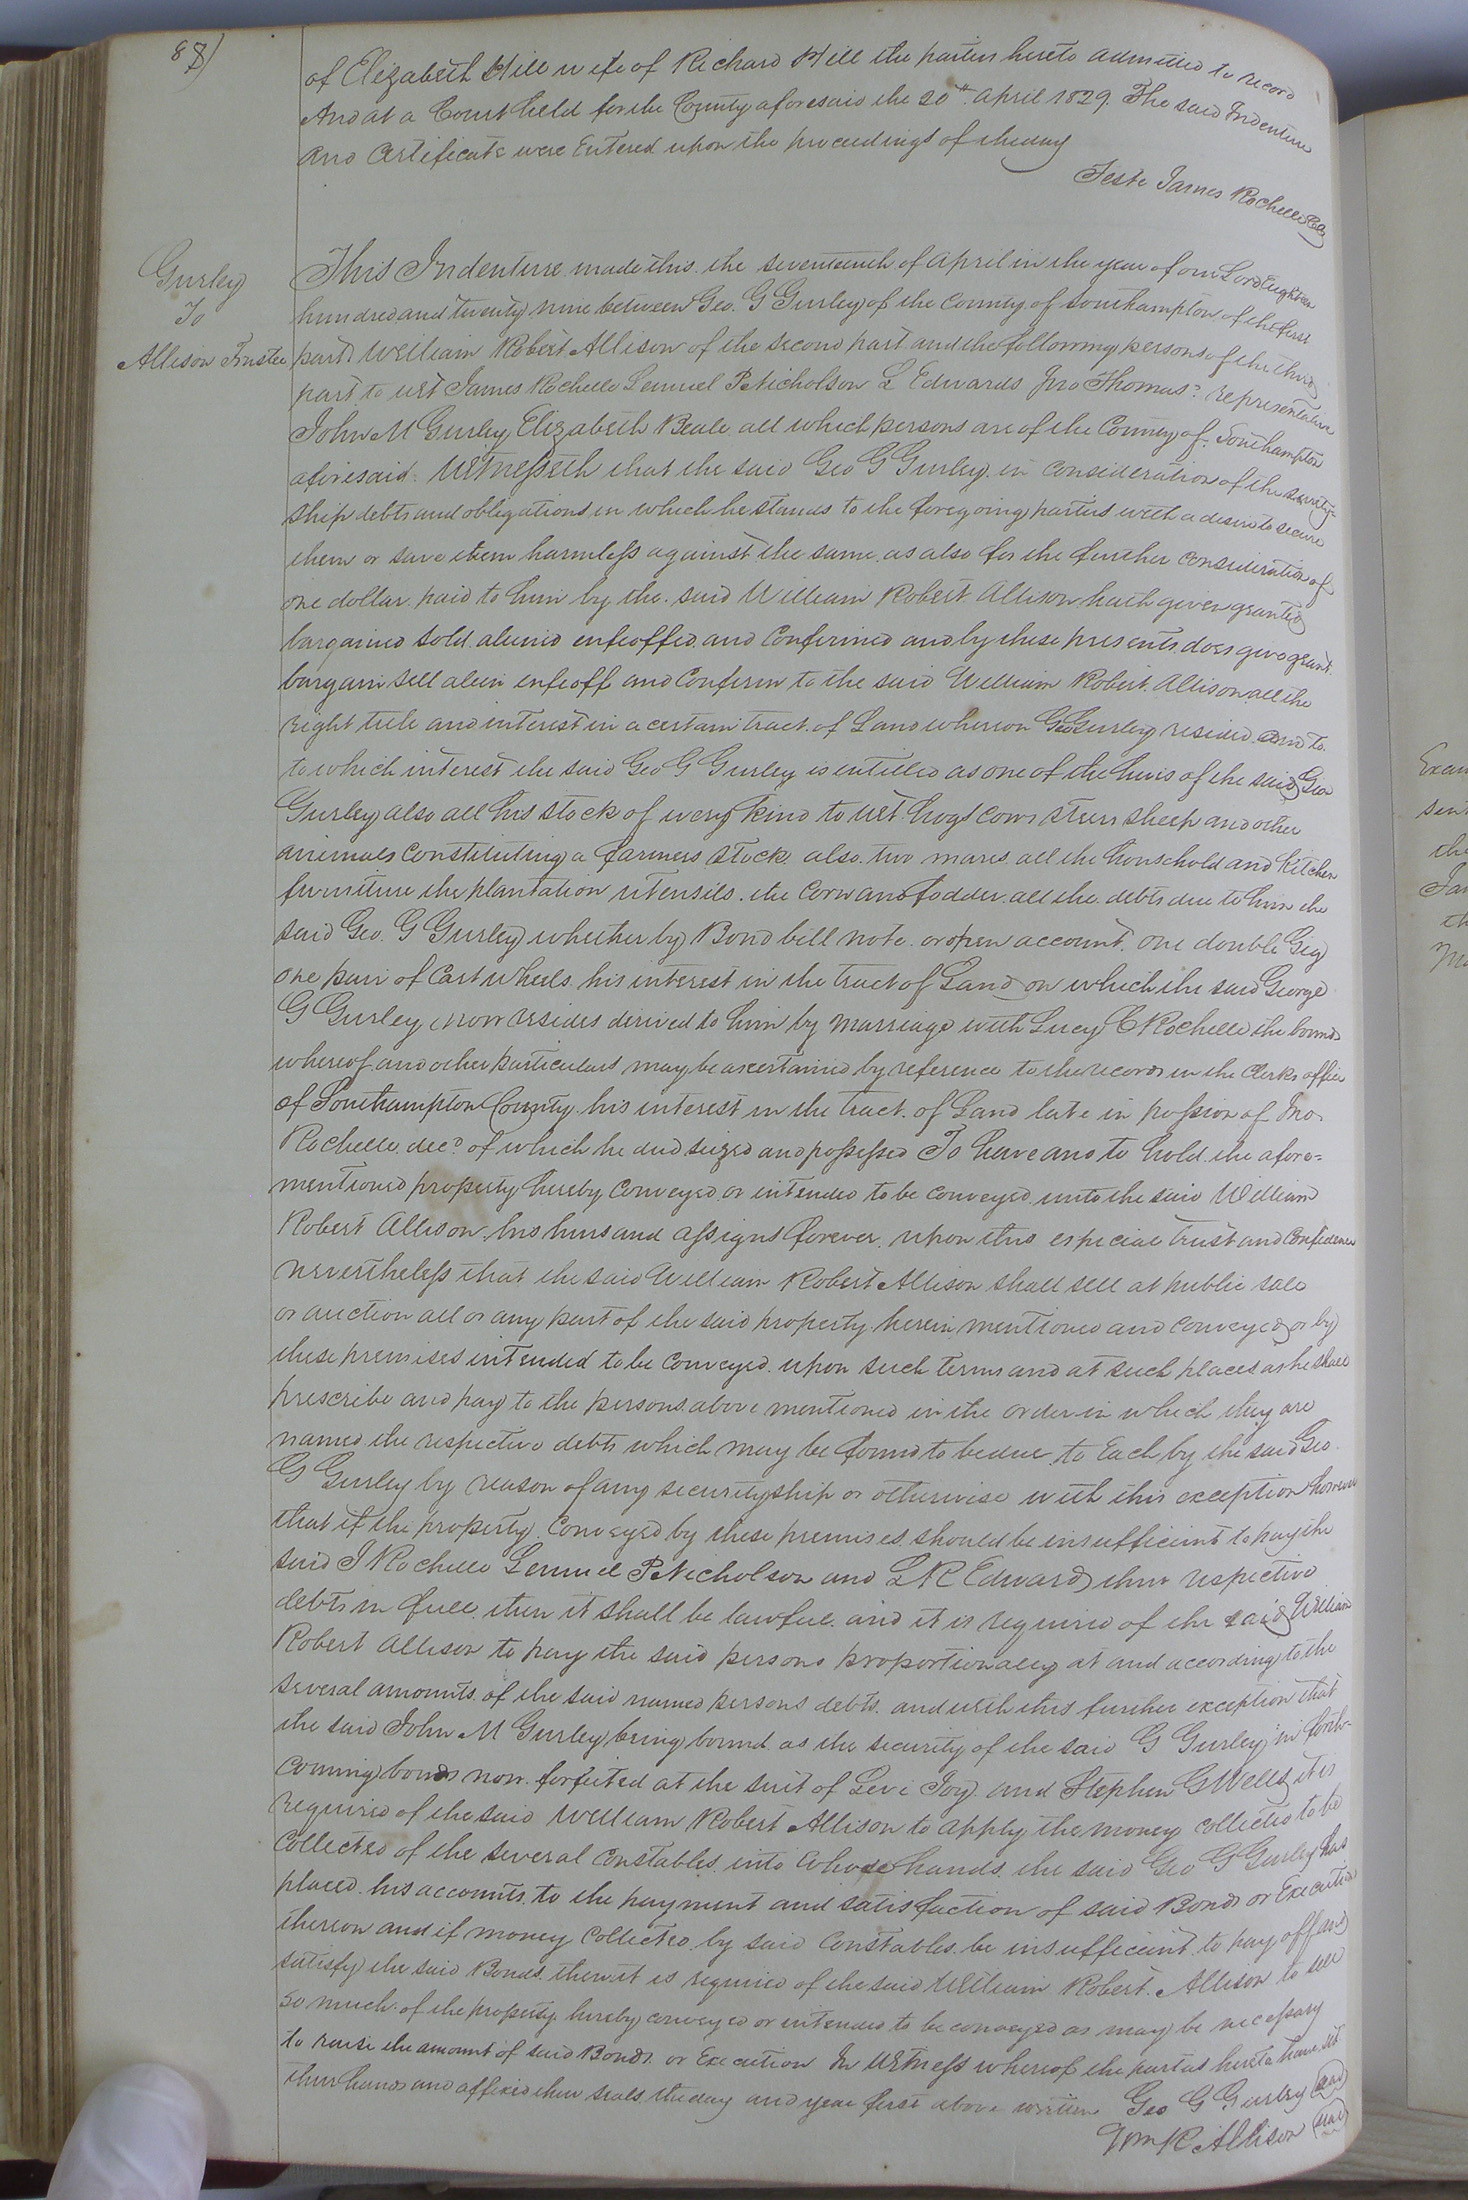 88)
of Elizabeth Hill wife of Richard Hill the parties hereto admitted to record
And at a Court held for the County aforesaid the 20th April 1829. The said Indenture
and Certificate were Entered upon the proceedings of the day
Teste James Rochelle
Gurley
To
Allison Trustee
This Indenture made this the seventeenth of April in the year of our Lord Eighteen
hundred and twenty nine between Geo. G Gurley of the County of Southampton of the first
part William Robert Allison of the second part and the following persons of the third
part to wit James Rochelle Lemuel P Nicholson L Edwards Jno Thomas' representative
John M Gurley Elizabeth Beale all which persons are of the County of Southampton
aforesaid. Witnesseth that the said Geo G Gurley in consideration of the security-
ship debts and obligations in which he stands to the foregoing parties with a desire to secure
them or save them harmless against the same as also for the further consideration of
one dollar paid to him by the said William Robert Allison hath given granted
bargained sold aliened enfeoffed and Confirmed and by these presents does give grant
bargain sell alien enfeoff and Confirm to the said William Robert Allison all the
right title and interest in a certain tract of Land whereon Geo Gurley resided and to
to which interest the said Geo G Gurley is entitled as one of the heirs of the said Geo
Gurley also all his stock of every kind to wit hogs cows steers sheep and other
animals constituting a farmers stock also two mares all the household and Kitchen
furniture the plantation utensils the corn and fodder all the debts due to him the
said Geo. G Gurley whether by Bond bill note or open account. one double Gig
one pair of Cart wheels his interest in the tract of Land on which the said George
G Gurley now resides derived to him by marriage with Lucy C Rochelle the bounds
whereof and other particulars may be ascertained by reference to the records in the Clerks office
of Southampton County his interest in the tract of Land late in possion of Jno
Rochelle decd of which he died seized and possessed To have and to hold the afore-
mentioned property hereby conveyed or intended to be conveyed unto the said William
Robert Allison his heirs and assigns forever upon this especial trust and Confidence
nevertheless that the said William Robert Allison shall sell at public sale
or auction all or any part of the said property herein mentioned and conveyed or by
these premises intended to be conveyed upon such terms and at such places as he shall
prescribe and pay to the persons above mentioned in the order in which they are
named the respective debts which may be found to be due to Each by the said Geo
G Gurley by reason of any securityship or otherwise with this exception however
that if the property conveyed by these premises should be insufficient to pay the
said J Rochelle Lemuel P Nicholson and L R Edwards their respective
debts in full then it shall be lawful and it is required of the said William
Robert Allison to pay the said persons proportionally at and according to the
several amounts of the said named persons debts and with this further exception that
the said John M Gurley being bound as the security of the said G Gurley in forth-
coming bonds now forfeited at the suit of Levi Joy and Stephen G Wells it is
required of the said William Robert Allison to apply the money collected to be
collected of the several Constables into whose hands the said Geo G Gurley has
placed his accounts to the payment and satisfaction of said Bonds or Execution
thereon and if money collected by said Constables be insufficient to pay off and
satisfy the said Bonds then it is required of the said William Robert Allison to sell
so much of the property hereby conveyed or intended to be conveyed as may be necessary
to raise the amount of said Bonds or Execution In Witness whereof the parties hereto have set
their hands and affixed their seals the day and year first above written Geo G Gurley seal
Wm R Allison seal